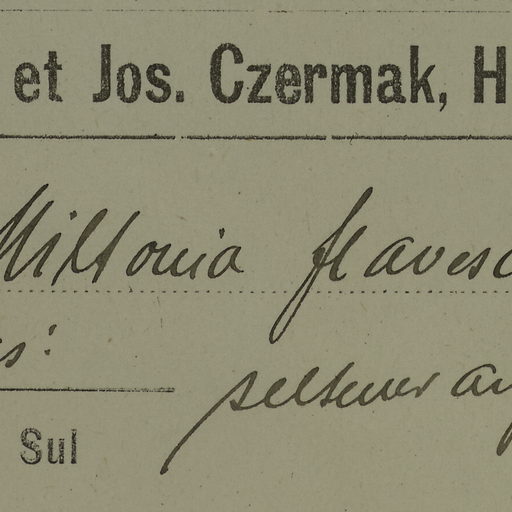 et Jos. Czermak, H
Miltonia flavesc
s:
seltener an
Sul